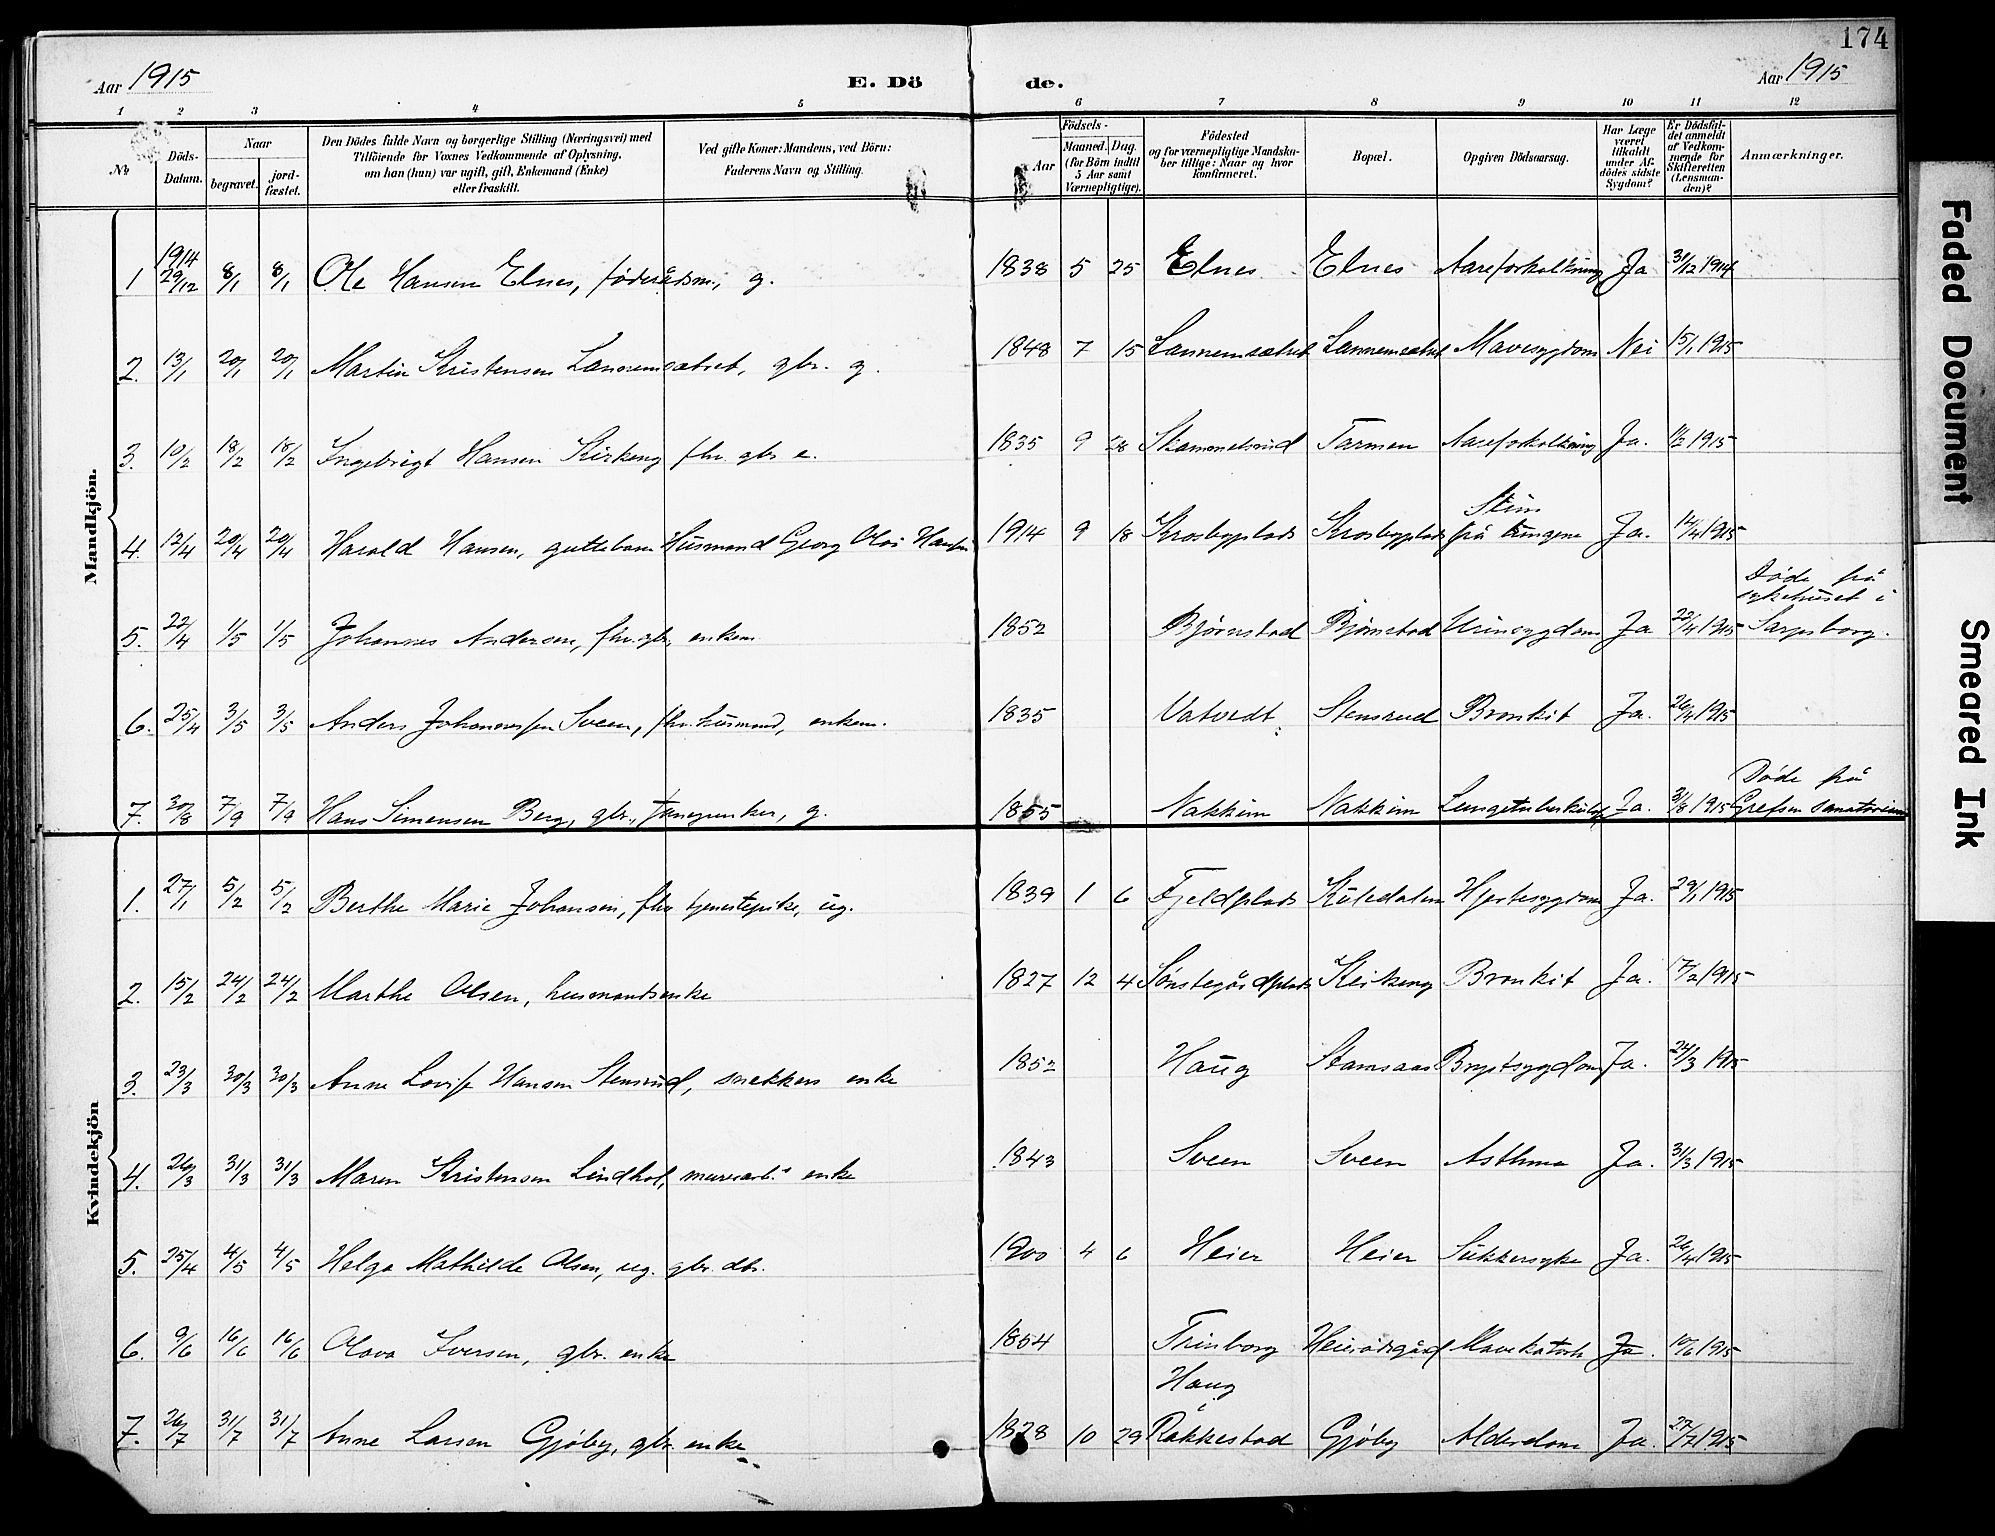 174
Aar 1915 E. Dö de. Aar 1915
1 2 3 4 5 6 7 8 9 10 11 12
№ Döds-Datum. Naar begravet. jord-fæstet. Den Dödes fulde Navn og borgerlige Stilling (Næringsvei) med Tilföiende for Voxnes Vedkommende af Oplysning, om han (hun) var ugift, gift, Enkemand (Enke) eller fraskilt. Ved gifte Koner: Mandens, ved Börn: Faderens Navn og Stilling. Födsels- Aar Maaned. Dag. (for Börn indtil 5 Aar samt Værnepligtige). Födested og for værnepligtige Mandskaber tillige: Naar og hvor konfirmeret. Bopæl. Opgiven Dödsaarsag. Har Læge været tilkaldt under Afdödes sidste Sygdom? Er Dödsfaldet anmeldt af Vedkommende for Skifteretten (Lensmanden)? Anmærkninger.
Mandkjön.
1 1914 29/12 8/1 8/1 Ole Hansen Elnes, føderådsm., g. 1838 5 25 Elnes Elnes Aareforkalkning Ja 31/12 1914
2. 13/1 20/1 20/1 Martin Kristensen Lannemsætret, gbr. g. 1848 7 15 Lannemsætret Lannemsætret Mavesygdom Nei 15/1 1915
3. 10/2 18/2 18/2 Ingebrigt Hansen Kirkeng fhv. gbr e. 1835 9 28 Skammelsrud Tarmen Aareforkalkning Ja. 1915
4. 12/4 20/4 20/4 Harald Hansen, guttebarn Husmand Georg Olai Hansen 1914 9 18 Krosbyplads Krosbyplads Slim på lungene Ja. 14/4 1915
5. 22/4 1/5 1/5 Johannes Andersen, fhv. gbr, enkem. 1852 Bjørnstad Bjørnstad Urinsygdom Ja 22/4 1915 Døde på sykehuset i Sarpsborg.
6. 25/4 3/5 3/5 Anders Johannessen Sveen, fhv. husmand, enkem. 1835 Vatvedt. Stensrud Bronkit Ja. 26/4 1915
7. 30/8 7/9 7/9 Hans Simensen Berg, gbr., g. 1855 Nakkim Nakkim Lungetuberkulose Ja. 31/8 1915 Døde på Grefsen Sanatorium
Kvindekjön
1. 27/1 5/2 5/2 Berthe Marie Johansen, fhv tjenestepike, ug. 1839 1 6 Fjeldplads Kuledalen Hjertesygdom Ja. 29/1 1915
2. 15/2 24/2 24/2 Marthe Olsen, husmandsenke 1827 12 4 Sønstegårdplads Kirkeng Bronkit Ja. 17/2 1915
3. 23/3 30/3 30/3 Anne Lovise Hansen Stensrud, snekkers enke 1852 Haug Stamsaas Brystsygdom Ja. 24/3 1915
4. 26/3 31/3 31/3 Maren Kristensen Lindhol, murerarb.s enke 1843 Sveen Sveen Asthma Ja. 31/3 1915
5. 25/4 4/5 4/5 Helga Mathilde Olsen, ug. gbr. dtr. 1900 4 6 Heier Heier Sukkersyke Ja. 26/4 1915
6. 9/6 16/6 16/6 Olava Iversen, gbr. enke 1854 Trinborg Haug Mavekatarh Ja. 10/6 1915
7. 26/7 31/7 31/7 Anne Larsen Gjøby, gbr. enke 1828 10 29 Rakkestad Gjøby Alderdom Ja. 27/7 1915
Faded Document
Smeared Ink